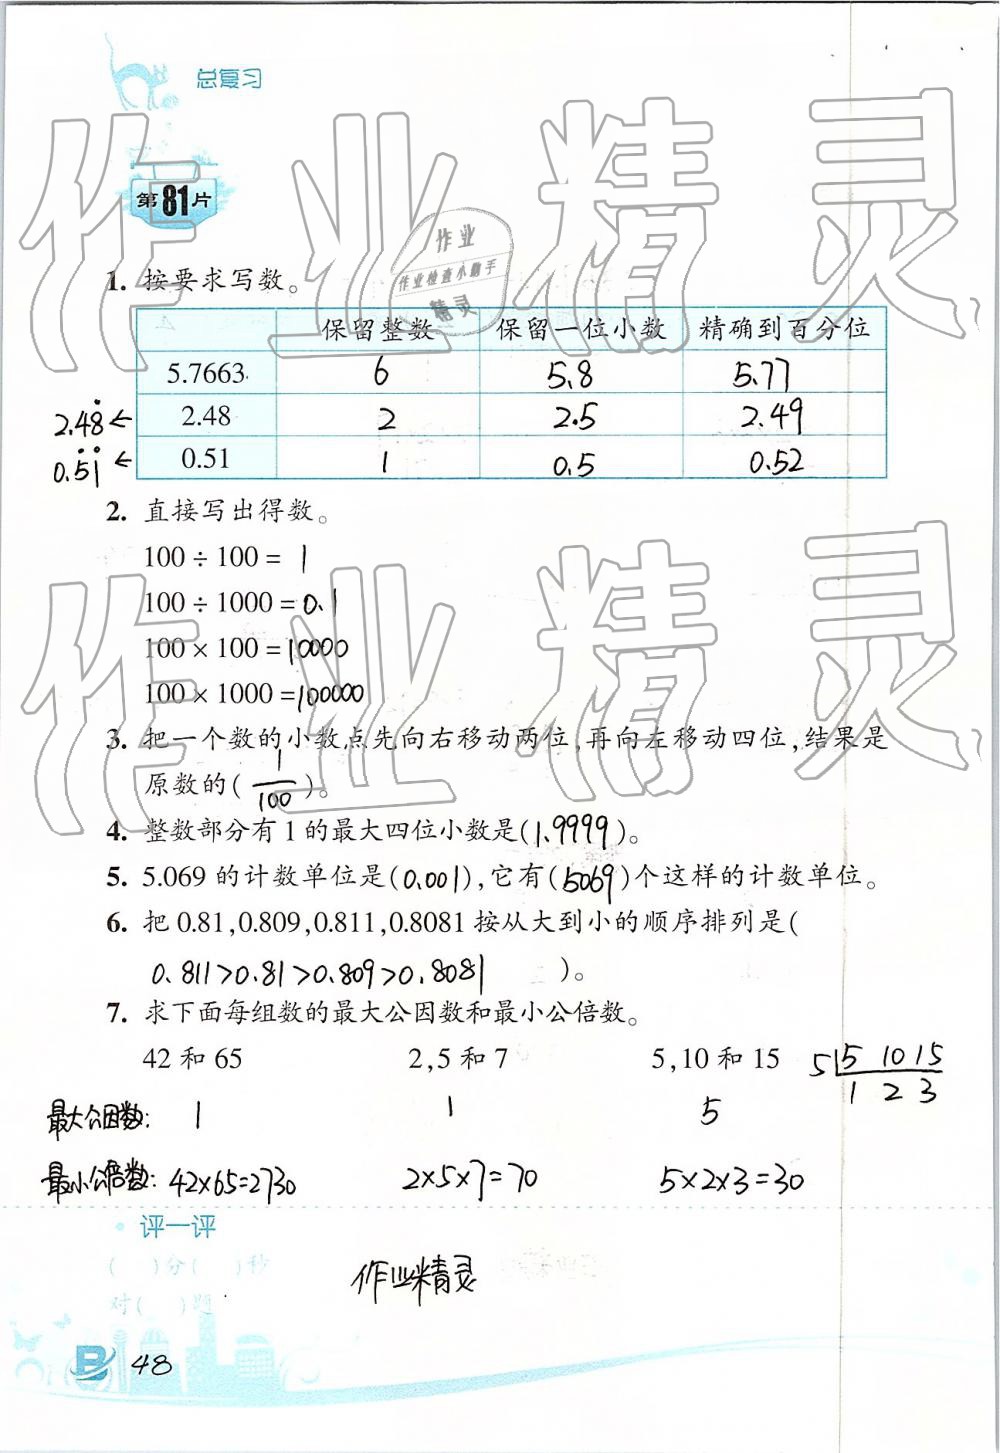 总复习
第81片
作业精灵
作业
作业检查小助手
精灵
1. 按要求写数。
保留整数 保留一位小数 精确到百分位
5.7663 6 5.8 5.77
2.48̇ ← 2.48 2 2.5 2.49
0.5̇1̇ ← 0.51 1 0.5 0.52
2. 直接写出得数。
100 ÷ 100 = 1
100 ÷ 1000 = 0.1
100 × 100 = 10000
100 × 1000 = 100000
作业精灵
3. 把一个数的小数点先向右移动两位,再向左移动四位,结果是
原数的( 1/100 )。
4. 整数部分有1的最大四位小数是(1.9999)。
5. 5.069的计数单位是(0.001),它有(5069)个这样的计数单位。
6. 把0.81,0.809,0.811,0.8081按从大到小的顺序排列是(
0.811>0.81>0.809>0.8081 )。
7. 求下面每组数的最大公因数和最小公倍数。
42和65 2,5和7 5,10和15 5 5 10 15
1 2 3
最大公因数: 1 1 5
最小公倍数: 42×65=2730 2×5×7=70 5×2×3=30
评一评
( )分( )秒
对( )题
作业精灵
B 48